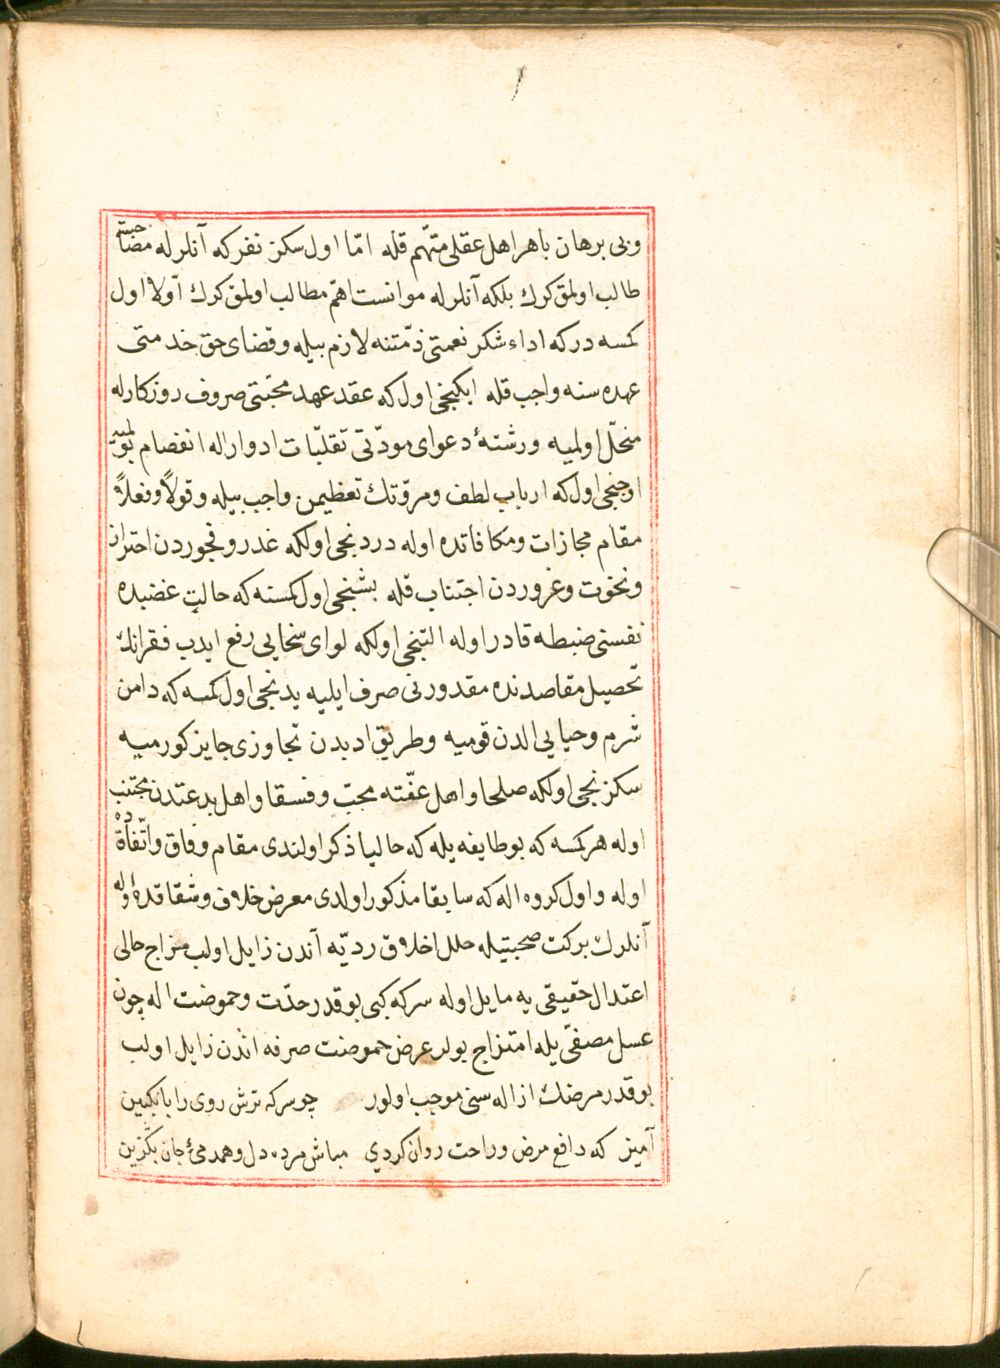 وبی برهان باهر اهل عقلی متّهم قله امّا اول سکز نفر که آنلر له مصاحبته
طالب اولمق کرك بلکه آنلر له موانست اهمّ مطالب اولمق کرك اوّلا اول
کمسه در که اداء شکر نعمتی ذمّتنه لازم بیله وقضای حق خدمتی
عهده سنه واجب قله ایکنجی اول که عقد عهد محبّتی صروف روزکارله
منحلّ اولمیه ورشتهٔ دعوای مودّتی تقلبات ادوار اله انفصام بولمیه
اوچنجی اول که ارباب لطف ومروّتك تعظیمن واجب بیله وقولاً وفعلاً
مقام مجازات ومکافاتده اوله دردنجی اولکه غدر وفجوردن احتراز
ونخوت وغروردن اجتناب قله بشنجی اول کمسنه که حالت غضبده
نفسنی ضبطه قادر اوله التنجی اولکه لوای سخایی رفع ایدب فقرانك
تحصیل مقاصدنده مقدورنی صرف ایلیه یدنجی اول کمسه که دامن
شرم وحیایی الدن قومیه وطریق ادبدن تجاوزی جایز کورمیه
سکزنجی اولکه صلحا واهل عفّته محبّ وفسقا واهل بدعتدن مجتنب
اوله هر کمسه که بو طایفه یله که حالیا ذکر اولندی مقام وفاق واتّفاقده
اوله واول کروه اله که سابقا مذکور اولدی معرض خلاف وشقاقده اوله
آنلرك برکت صحبتیله حلل اخلاق ردیّه آندن زایل اولب مزاج حالی
اعتدال حقیقی یه مایل اوله سرکه کبی بو قدر حدّت وحموضت اله چون
عسل مصفّی یله امتزاج بولر عرض حموضت صرفه اندن زایل اولب
بو قدر مرضك ازاله سنی موجب اولور چو سرکه ترش روی را بانکبین
آمیز که دافع مرض وراحت روان کردی مباش مرده دل وهمدمیٔ جان بکزین